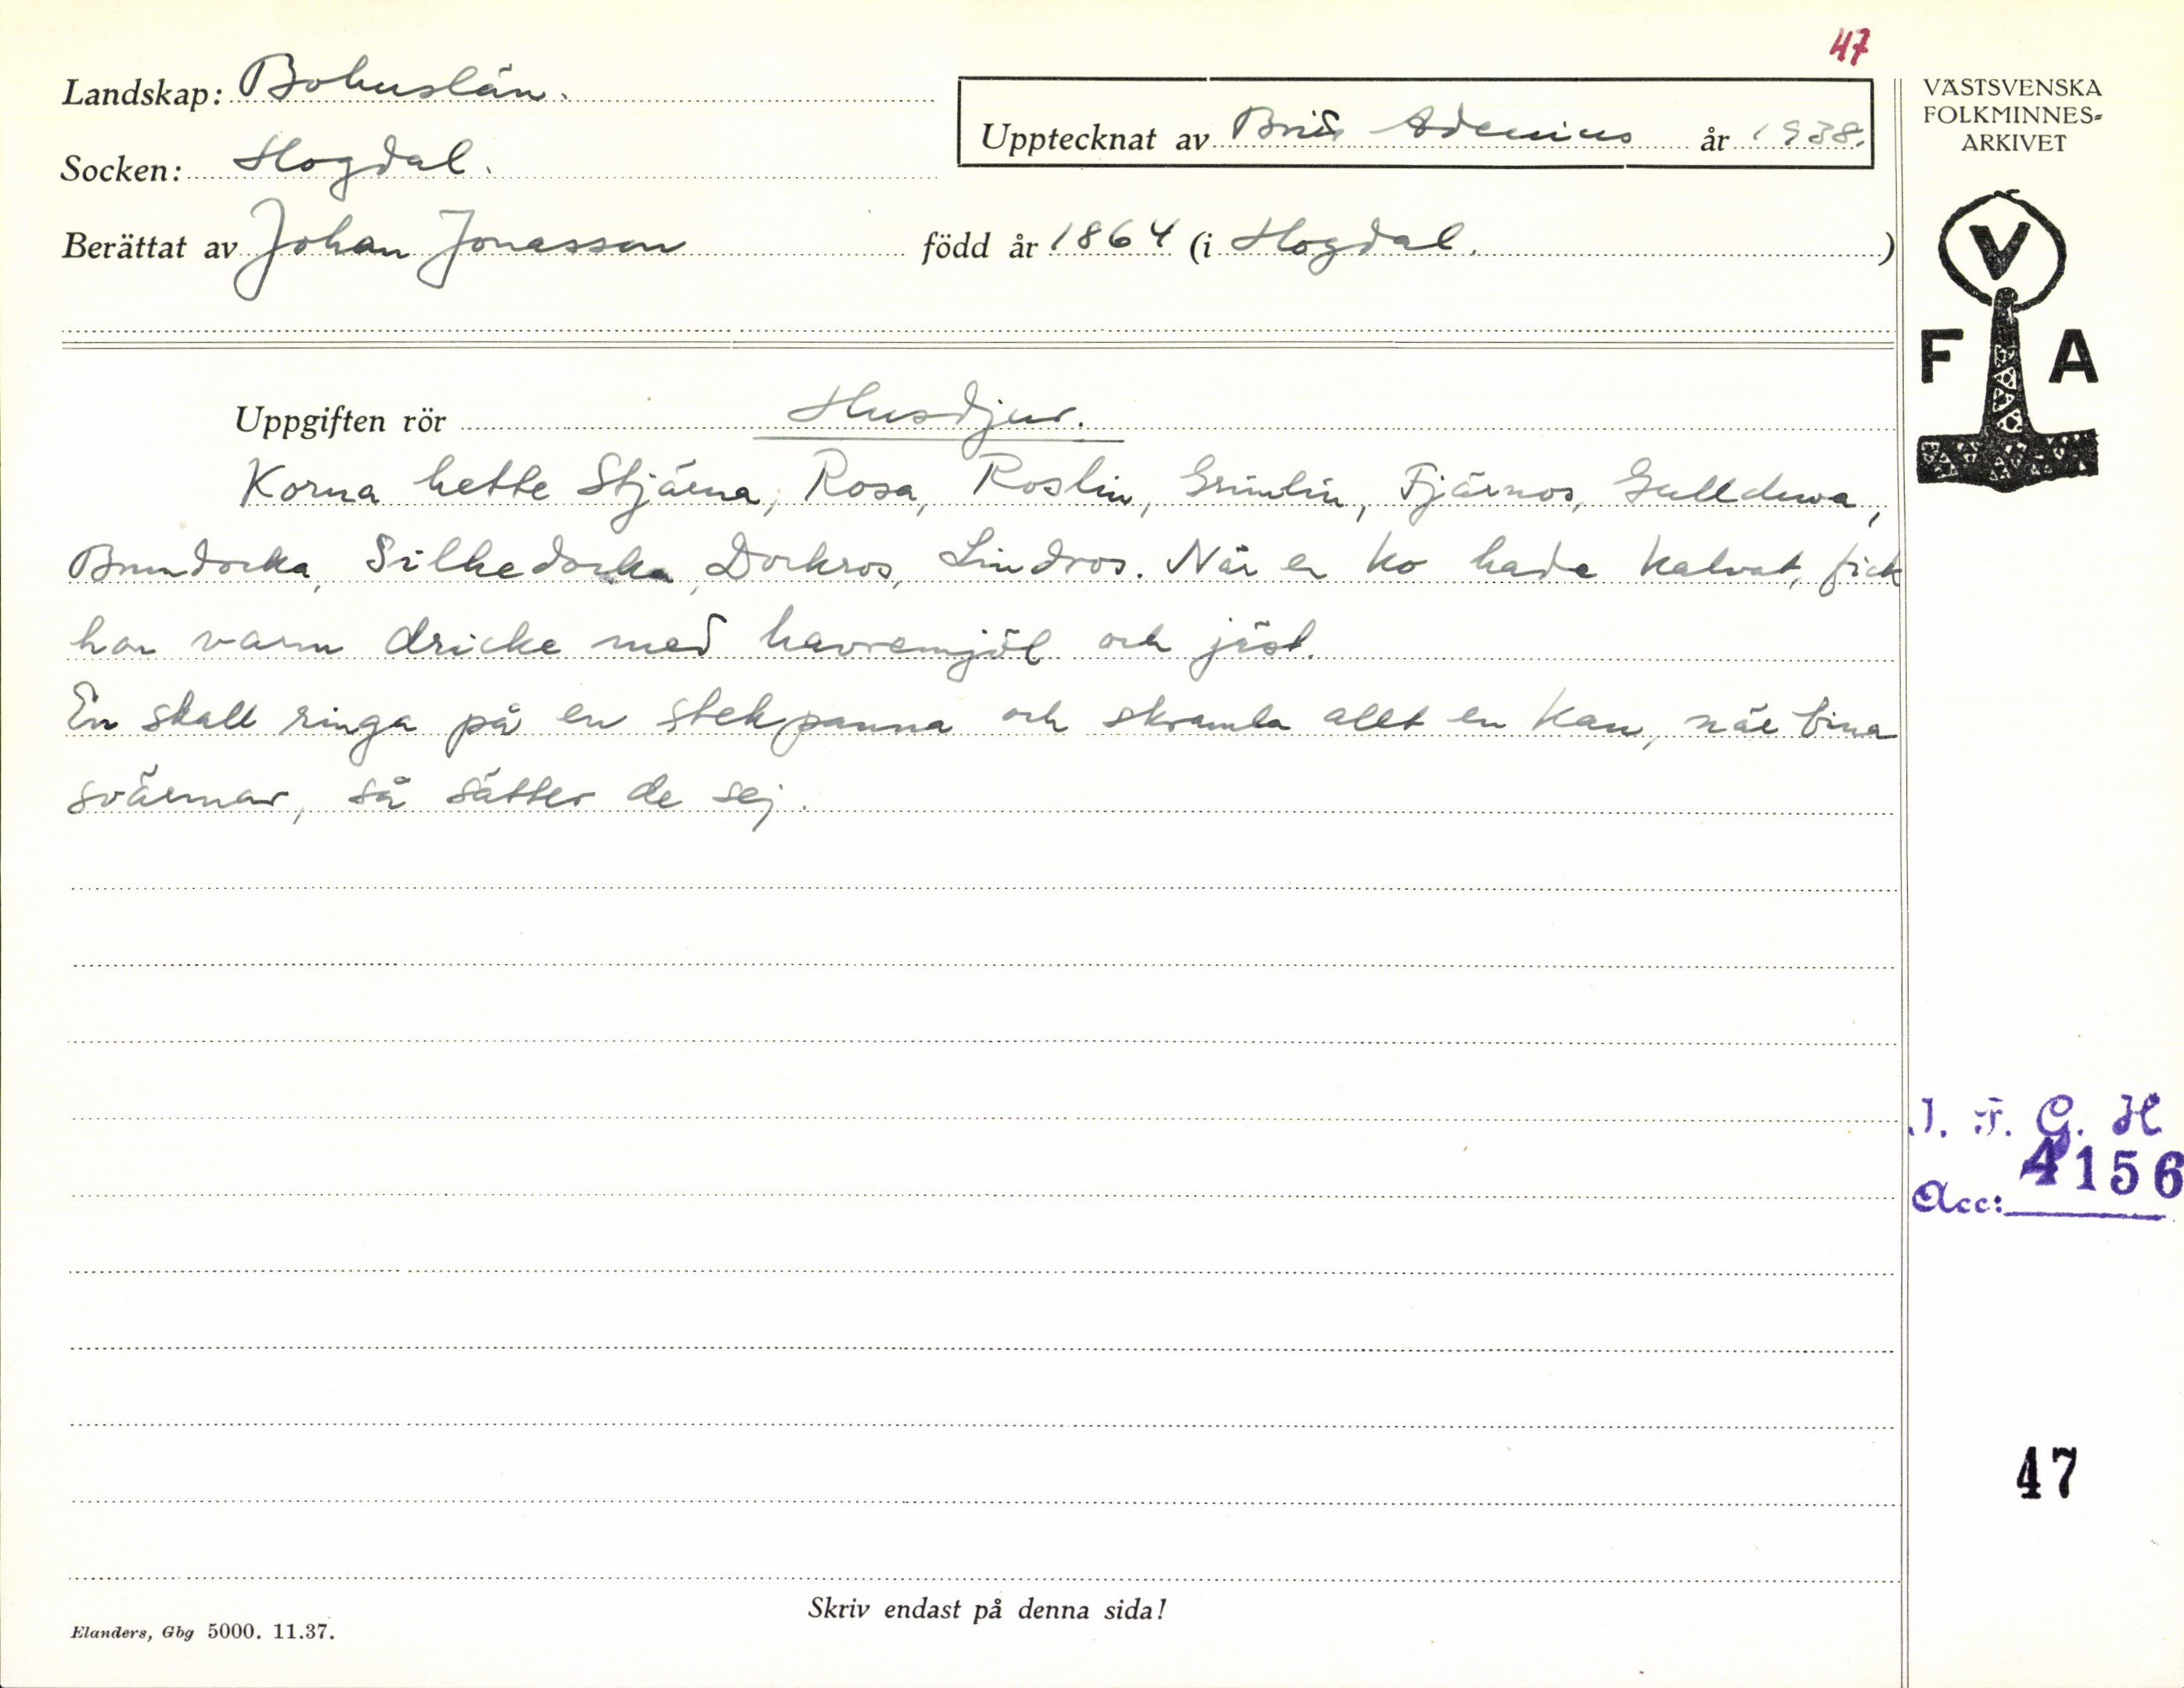 47
Landskap: Bohuslän.
Socken: Hogdal.
Upptecknat av Britt Adenius år 1938.
Berättat av Johan Jonasson född år 1864 (i Hogdal. )
VÄSTSVENSKA
FOLKMINNES=
ARKIVET
V
F A
Uppgiften rör Husdjur.
Korna hette Stjärna, Rosa, Roslin, Grimlin, Fjärnos, Gullduva,
Brundocka, Silkedocka, Dockros, Lindros. När en ko hade kalvat, fick
hon varm dricke med havremjöl och jäst.
En skall ringa på en stekpanna och skramla allt en kan, när bina
svärmar, så sätter de sej.
I. F. G. H
4156
Acc:
47
Skriv endast på denna sida!
Elanders, Gbg 5000. 11.37.